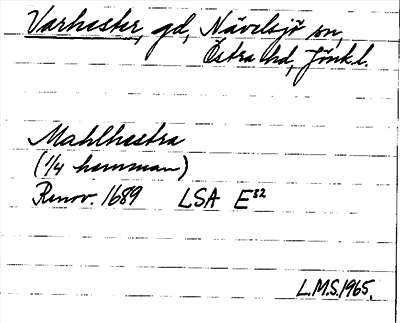 Varhester, gd, Nävelsjö sn,
Östra hd, Jönk.l.
Mahlhestra
(1/4 hemman)
Renov. 1689 LSA E82
L.M.S. 1965.